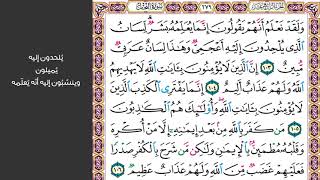 ٢٧٩
وَلَقَدْ نَعْلَمُ أَنَّهُمْ يَقُولُونَ إِنَّمَا يُعَلِّمُهُۥ بَشَرٌ لِّسَانُ
ٱلَّذِى يُلْحِدُونَ إِلَيْهِ أَعْجَمِىٌّ وَهَٰذَا لِسَانٌ عَرَبِىٌّ
مُّبِينٌ ١٠٣ إِنَّ ٱلَّذِينَ لَا يُؤْمِنُونَ بِـَٔايَٰتِ ٱللَّهِ لَا يَهْدِيهِمُ
ٱللَّهُ وَلَهُمْ عَذَابٌ أَلِيمٌ ١٠٤ إِنَّمَا يَفْتَرِى ٱلْكَذِبَ ٱلَّذِينَ
لَا يُؤْمِنُونَ بِـَٔايَٰتِ ٱللَّهِ وَأُو۟لَٰٓئِكَ هُمُ ٱلْكَٰذِبُونَ
١٠٥ مَن كَفَرَ بِٱللَّهِ مِنۢ بَعْدِ إِيمَٰنِهِۦٓ إِلَّا مَنْ أُكْرِهَ
وَقَلْبُهُۥ مُطْمَئِنٌّۢ بِٱلْإِيمَٰنِ وَلَٰكِن مَّن شَرَحَ بِٱلْكُفْرِ صَدْرًا
فَعَلَيْهِمْ غَضَبٌ مِّنَ ٱللَّهِ وَلَهُمْ عَذَابٌ عَظِيمٌ ١٠٦
يُلحدون إليه
يَميلون
وينسُبُون إليه أنه يُعلّمه